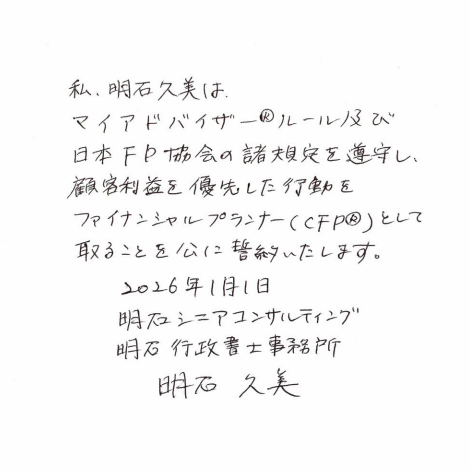 私、明石久美は、
マイアドバイザー®ルール及び
日本FP協会の諸規定を遵守し、
顧客利益を優先した行動を
ファイナンシャルプランナー(CFP®)として
取ることを公に誓約いたします。
2026年1月1日
明石シニアコンサルティング
明石行政書士事務所
明石 久美